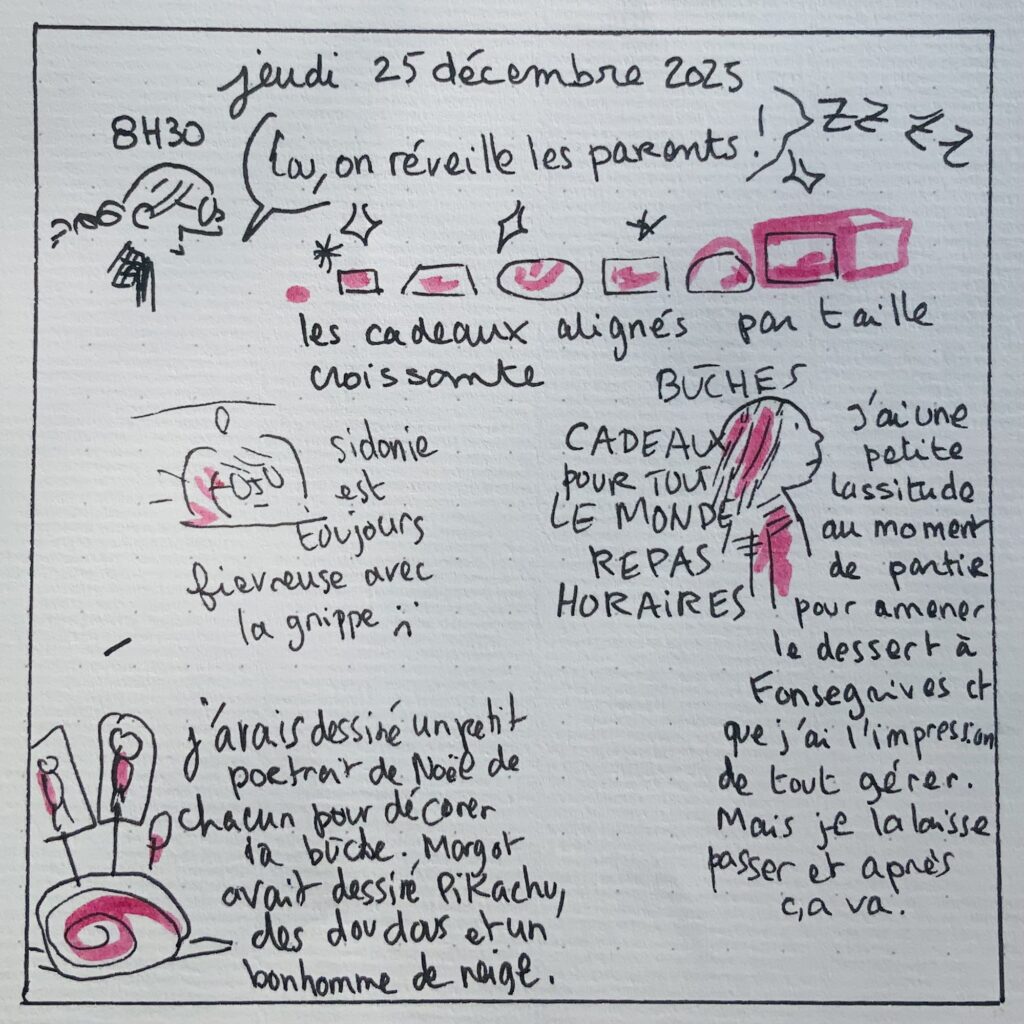 jeudi 25 décembre 2025
8H30
ça, on réveille les parents !
ZZ ZZ
les cadeaux alignés par taille
croissante
sidonie
est
toujours
fievreuse avec
la grippe :(
BÛCHES
CADEAUX
POUR TOUT
LE MONDE
REPAS
HORAIRES
J'ai une
petite
lassitude
au moment
de partir
pour amener
le dessert à
Fonsegrives et
que j'ai l'impression
de tout gérer.
Mais je la laisse
passer et après
ça va.
j'avais dessiné un petit
portrait de Noël de
chacun pour décorer
la bûche. Margot
avait dessiné Pikachu,
des doudous et un
bonhomme de neige.